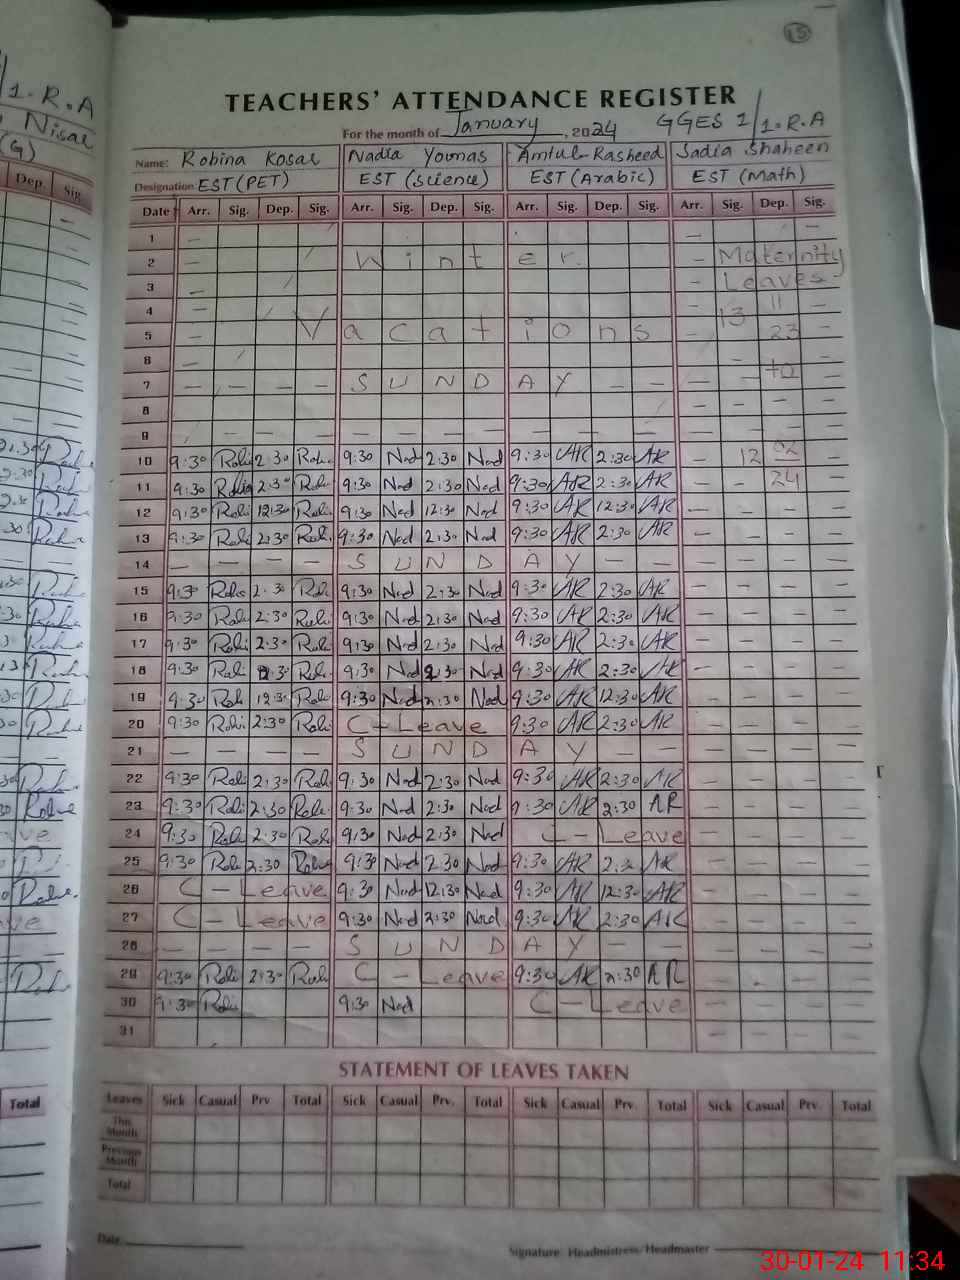 15
TEACHERS' ATTENDANCE REGISTER
For the month of January, 2024 GGES 1/1.R.A
Name: Robina Kosar Nadia Younas Amtul-Rasheed Sadia Shaheen
Designation: EST (PET) EST (Science) EST (Arabic) EST (Math)
Date Arr. Sig. Dep. Sig. Arr. Sig. Dep. Sig. Arr. Sig. Dep. Sig. Arr. Sig. Dep. Sig.
1
2 Winter Maternity
3 Leaves
4 13 11
5 Vacations 23
6 to
7 SUNDAY
8
9
10 9:30 Robi 2:30 Robi 9:30 Nad 2:30 Nad 9:30 AR 2:30 AR 12 02
11 9:30 Robi 2:30 Robi 9:30 Nad 2:30 Nad 9:30 AR 2:30 AR 24
12 9:30 Robi 12:30 Robi 9:30 Nad 12:30 Nad 9:30 AR 12:30 AR
13 9:30 Robi 2:30 Robi 9:30 Nad 2:30 Nad 9:30 AR 2:30 AR
14 SUNDAY
15 9:30 Robi 2:30 Robi 9:30 Nad 2:30 Nad 9:30 AR 2:30 AR
16 9:30 Robi 2:30 Robi 9:30 Nad 2:30 Nad 9:30 AR 2:30 AR
17 9:30 Robi 2:30 Robi 9:30 Nad 2:30 Nad 9:30 AR 2:30 AR
18 9:30 Robi 2:30 Robi 9:30 Nad 2:30 Nad 9:30 AR 2:30 AR
19 9:30 Robi 12:30 Robi 9:30 Nad Nad 9:30 AR 12:30 AR
20 9:30 Robi 2:30 Robi C-Leave 9:30 AR 2:30 AR
21 SUNDAY
22 9:30 Robi 2:30 Robi 9:30 Nad 2:30 Nad 9:30 AR 2:30 AR
23 9:30 Robi 2:30 Robi 9:30 Nad 2:30 Nad 9:30 AR 2:30 AR
24 9:30 Robi 2:30 Robi 9:30 Nad 2:30 Nad C-Leave
25 9:30 Robi 2:30 Robi 9:30 Nad 2:30 Nad 9:30 AR 2:30 AR
26 C-Leave 9:30 Nad 12:30 Nad 9:30 AR 12:30 AR
27 C-Leave 9:30 Nad 2:30 Nad 9:30 AR 2:30 AR
28 SUNDAY
29 9:30 Robi 2:30 Robi C-Leave 9:30 AR 2:30 AR
30 9:30 Robi 9:30 Nad C-Leave
31
STATEMENT OF LEAVES TAKEN
Leaves Sick Casual Prv Total Sick Casual Prv. Total Sick Casual Prv. Total Sick Casual Prv. Total
This Month
Previous Month
Total
Date
Signature: Headmistress/Headmaster
30-01-24 11:34
1.R.A
Nisar
(G)
Dep. Sig.
Total